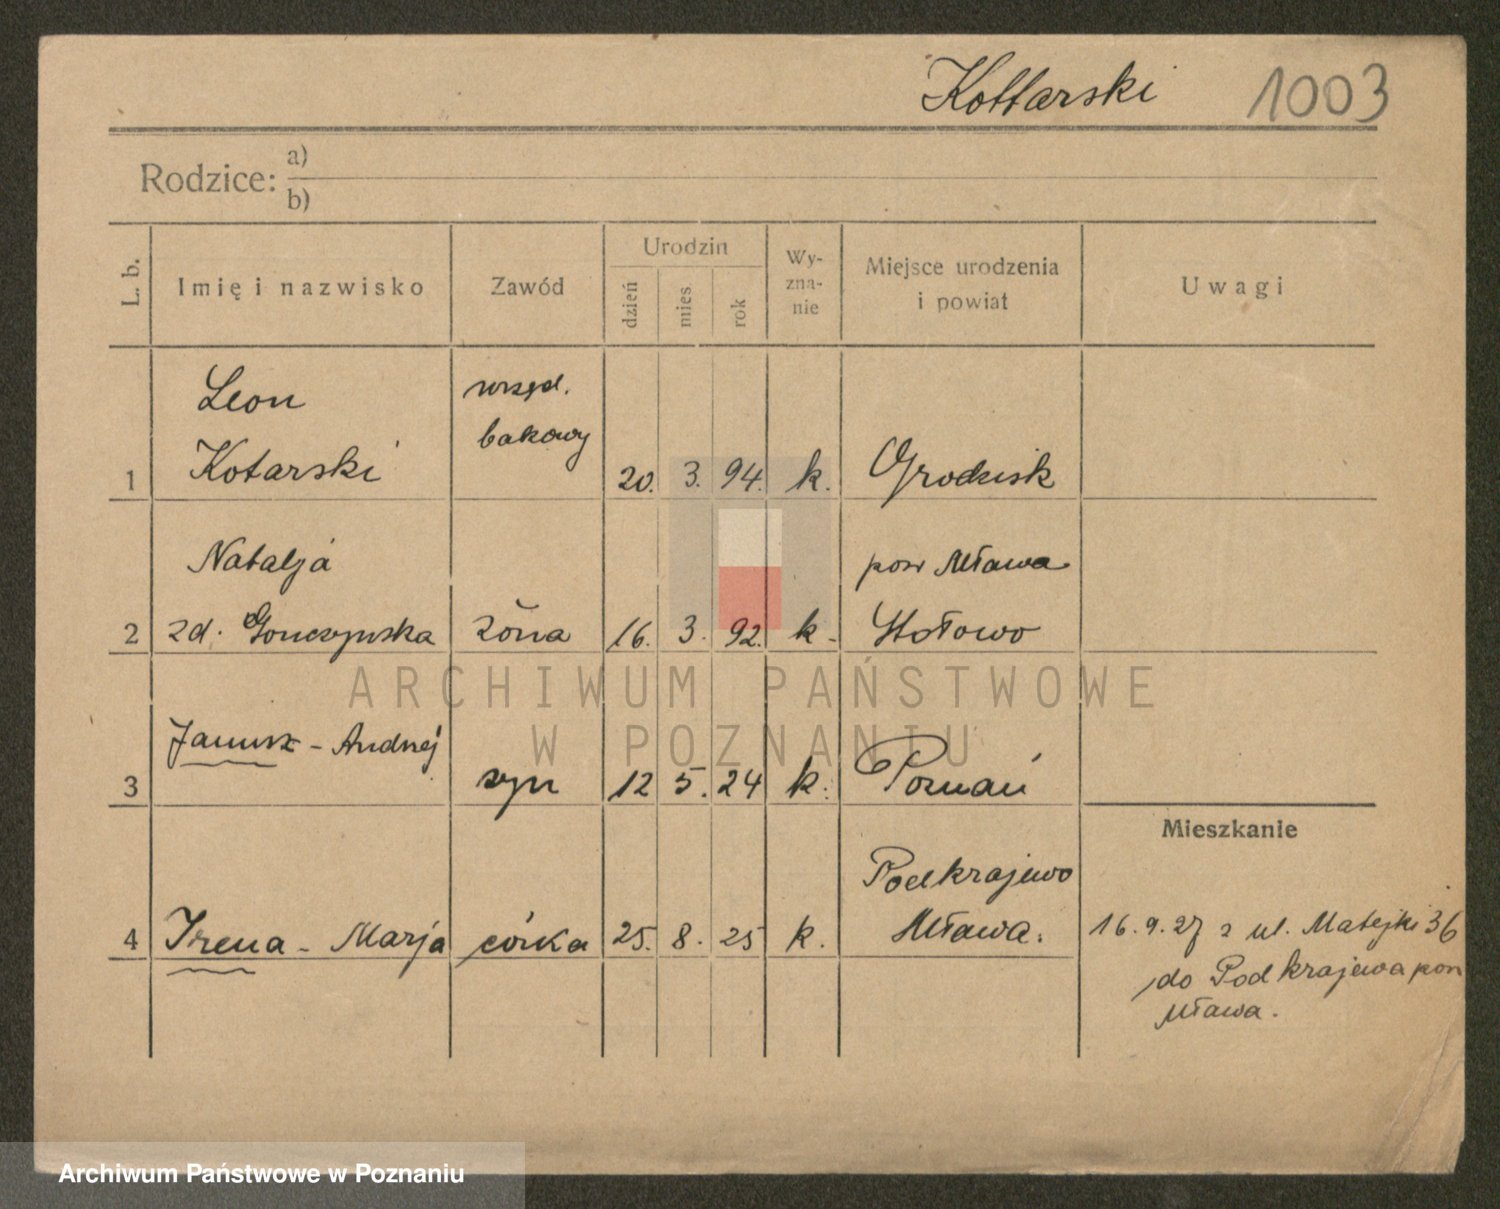 Kottarski 1003
Rodzice: a)
b)
L. b. Imię i nazwisko Zawód Urodzin dzień mies rok Wy-zna-nie Miejsce urodzenia i powiat Uwagi
Leon urzęd.
bakowy
1 Kotarski 20. 3. 94. k. Grodzisk
Natalja pow Mława
2 zd. Gonczynska żona 16. 3. 92. k. Stołowo
Janusz - Andrzej
3 syn 12 5. 24 k. Poznań
Mieszkanie
Podkrajewo
4 Irena - Marja córka 25. 8. 25 k. Mława. 16. 9. 27 z ul. Matejki 36
do Podkrajewa pow
Mława.
ARCHIWUM PAŃSTWOWE
W POZNANIU
Archiwum Państwowe w Poznaniu